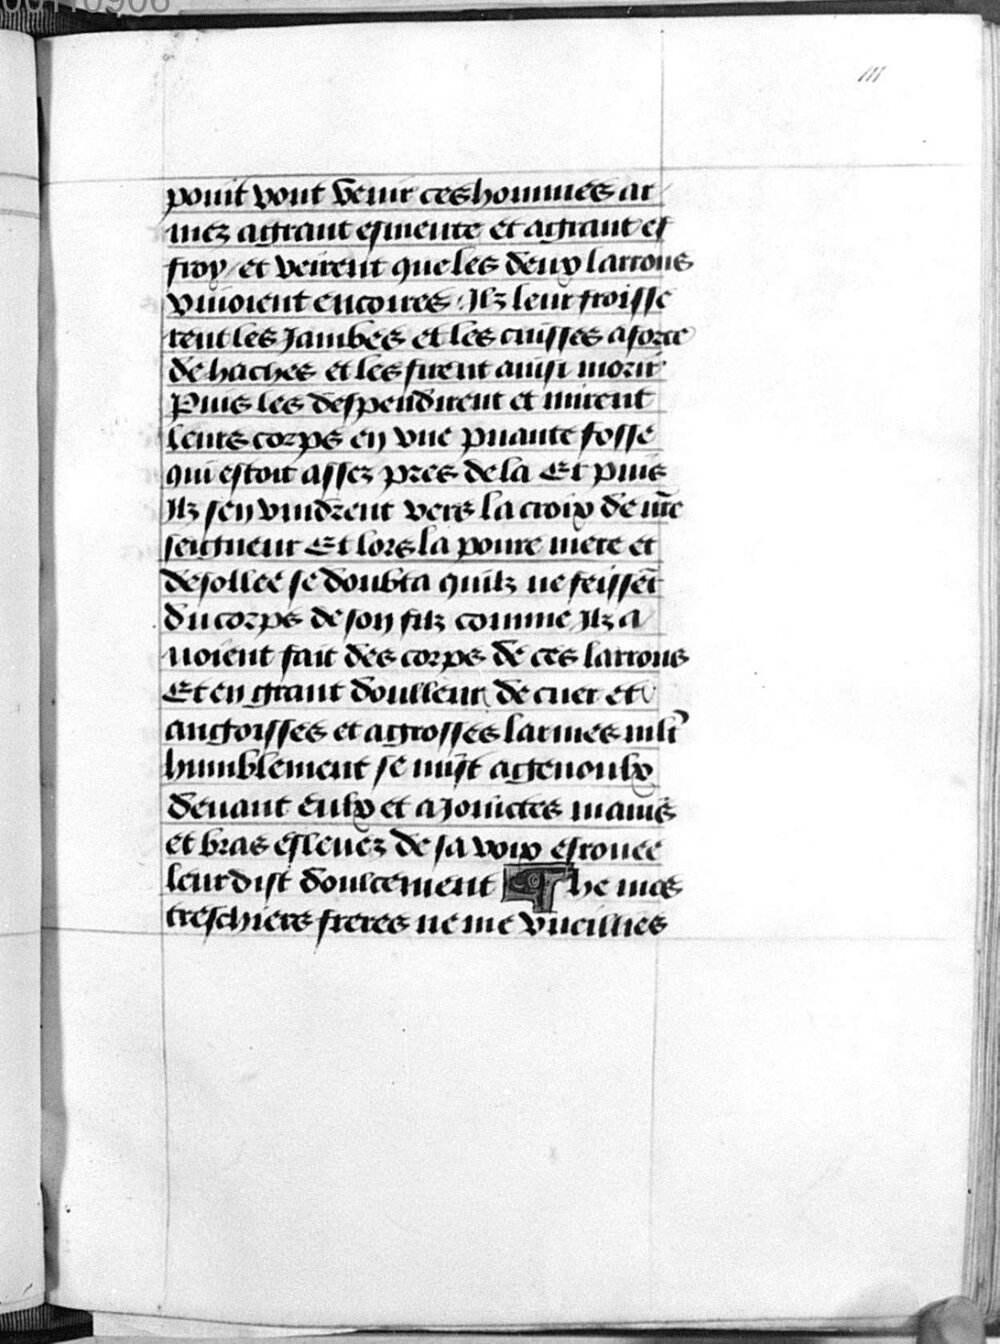 00110908
111
point vont venir ces hommes ar
mez a grant esmeute et a grant ef
froy et veirent que les deux larrons
vivoient encoires Ilz leur froisse
rent les Jambes et les cuisses a force
de haches et les firent ainsi morir
Puis les despendirent et mirent
leurs corps en vne puante fosse
qui estoit assez pres de la Et puis
Ilz sen vindrent vers la croix de nr̃e
seigneur Et lors la poure mere et
desollee se doubta quilz ne feissẽt
du corps de son filz comme Ilz a
uoient fait des corps de ces larrons
Et en grant doulleur de cuer et
angoisses et a grosses larmes mlt̃
humblement se mist a genoulx
deuant eulx et a Joinctes mains
et bras esleuez de sa voix esrouee
leur dist doulcement He mes
treschiers freres ne me vueillies